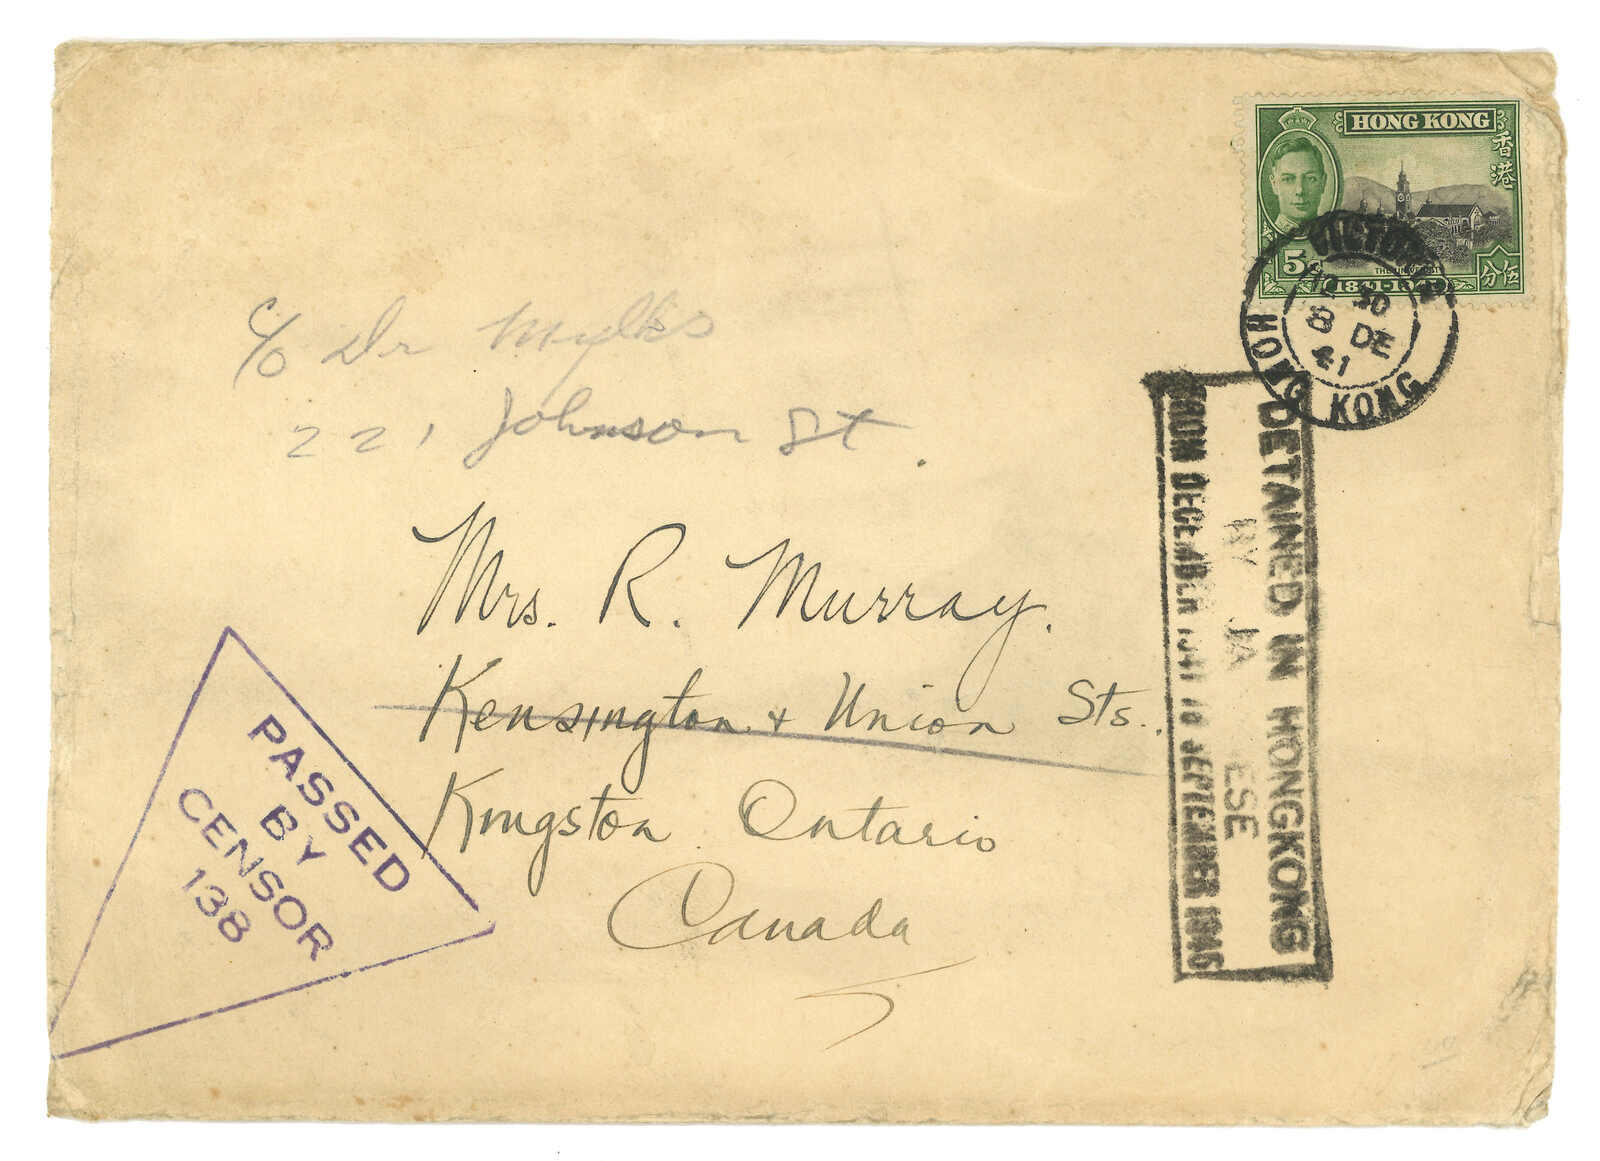 HONG KONG
香港
5
伍分
1841-1941
VICTORIA
30
8 DE
41
HONG KONG
c/o Dr Mylks
221 Johnson St.
Mrs. R. Murray.
Kensington + Union Sts.
Kingston Ontario
Canada
PASSED
BY
CENSOR
138
DETAINED IN HONGKONG
BY JA ESE
FROM DECEMBER 1941 TO SEPTEMBER 1945